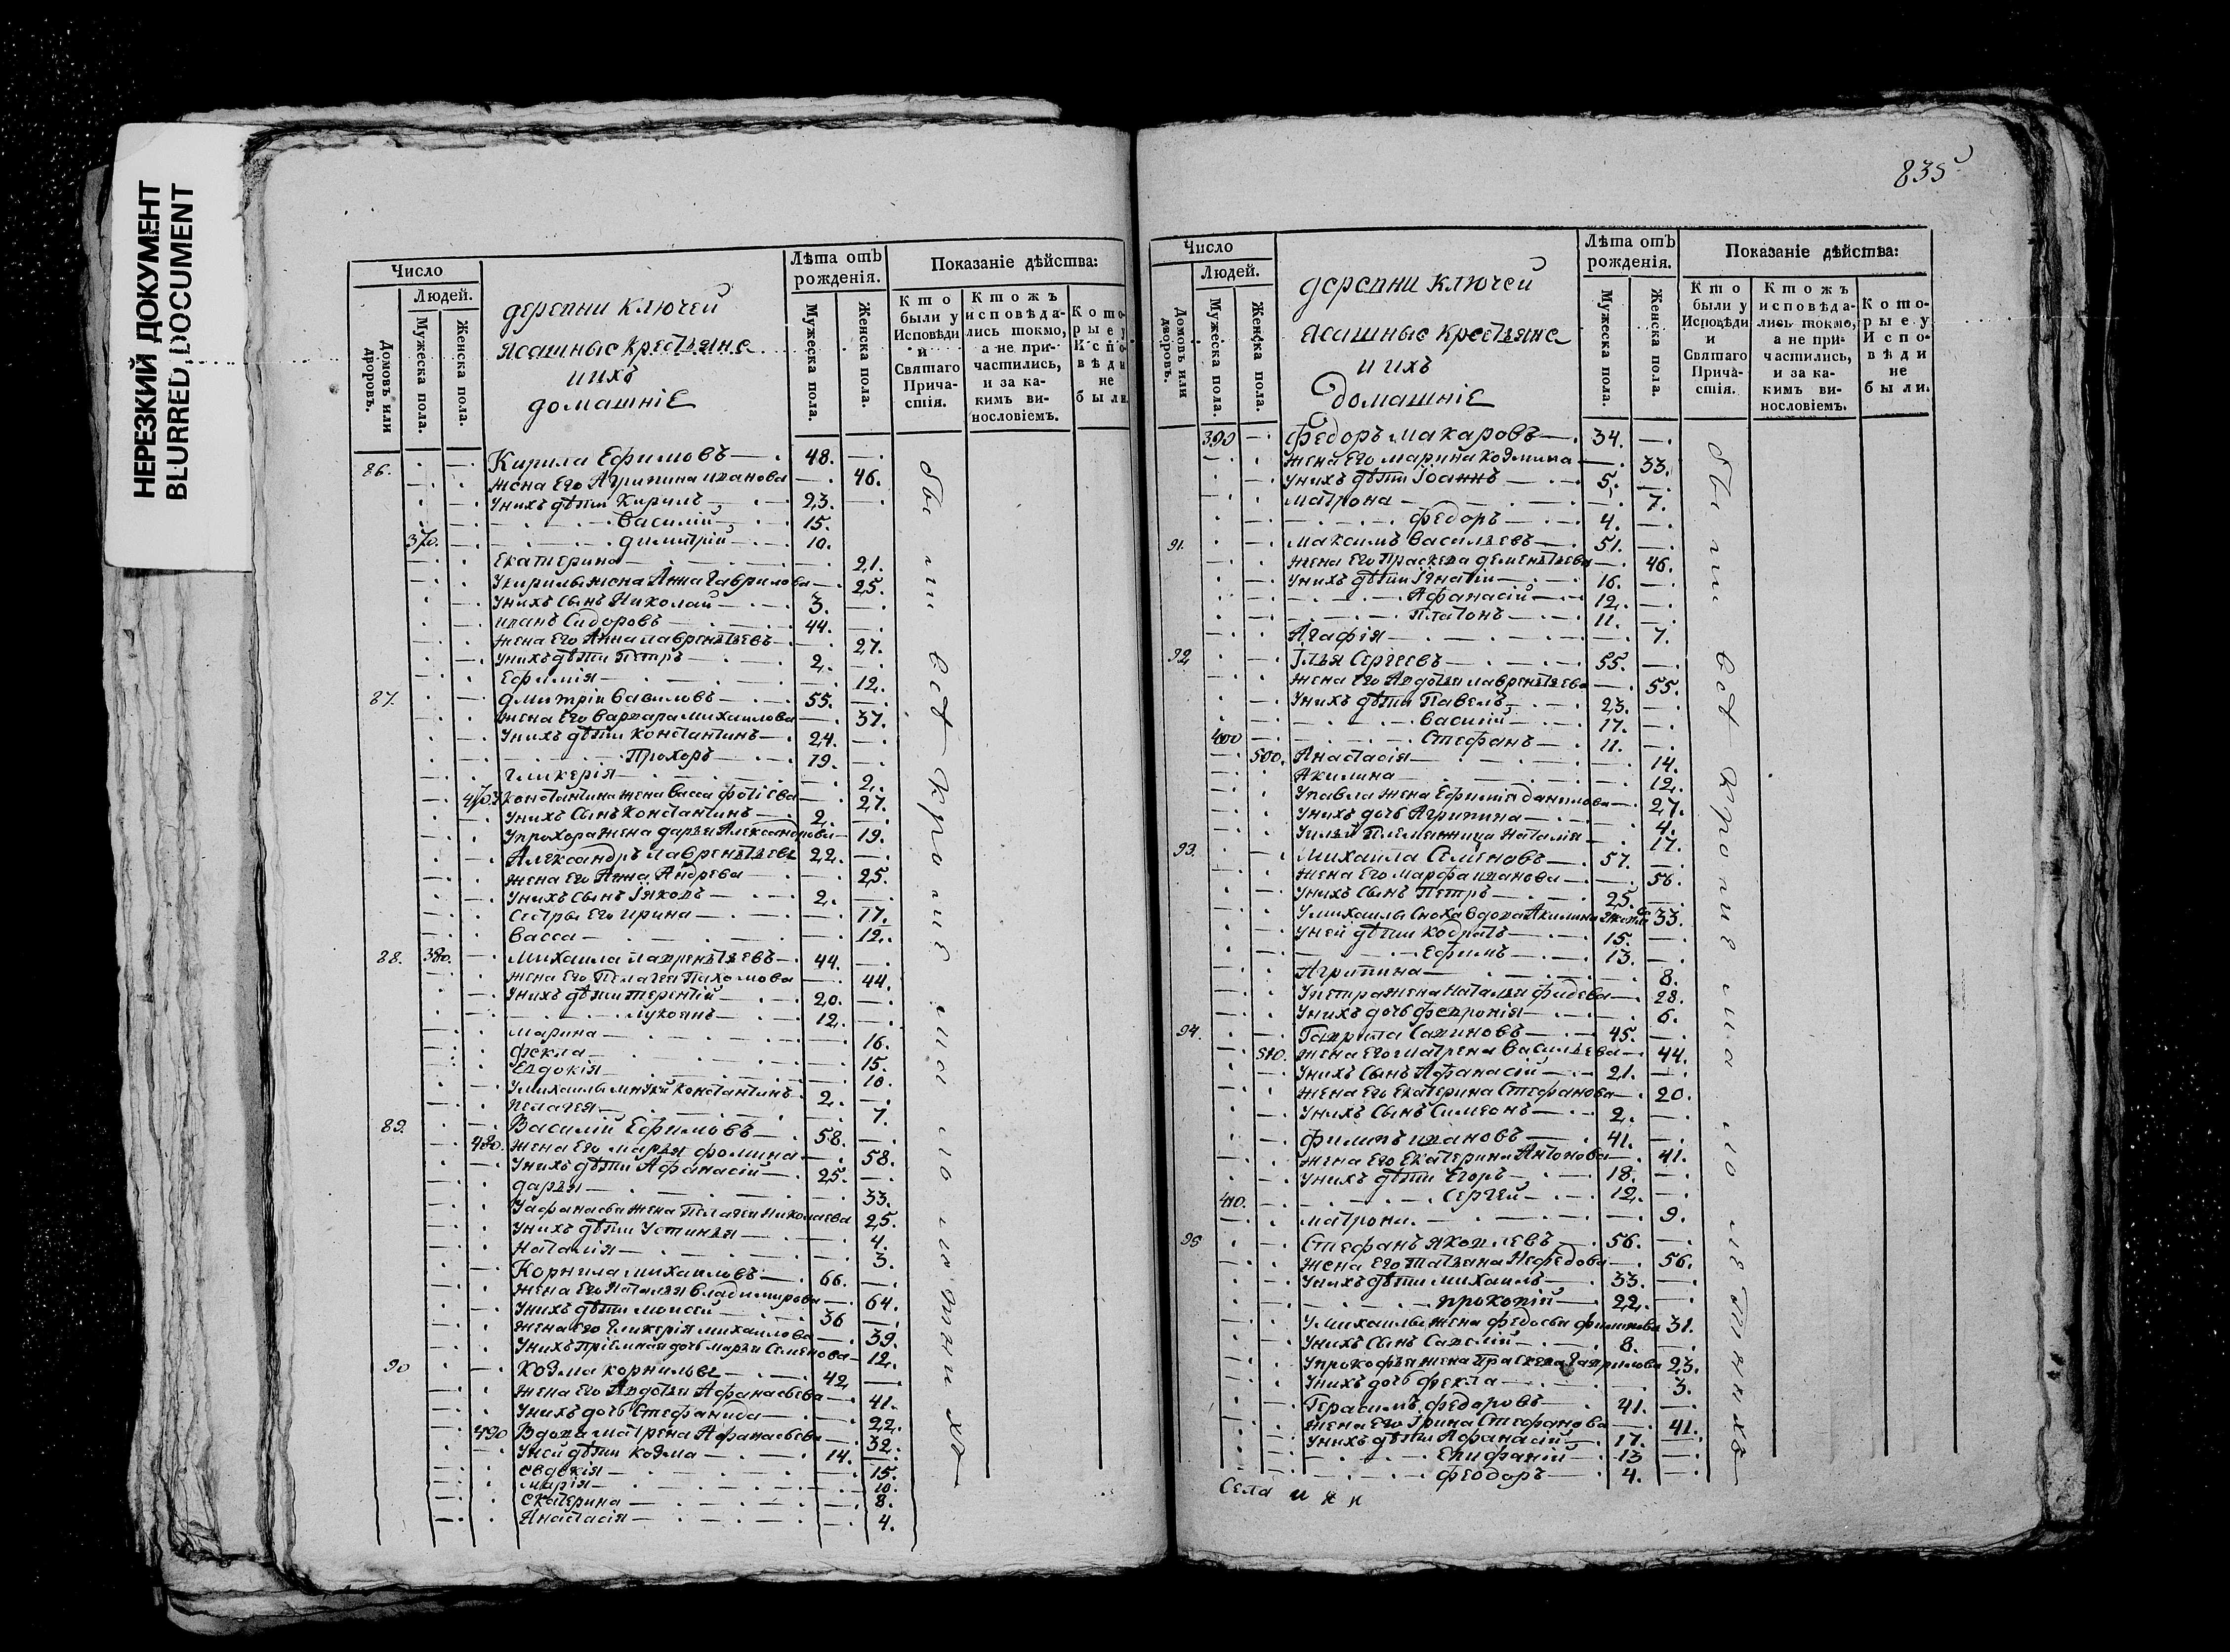 НЕРЕЗКИЙ ДОКУМЕНТ
BLURRED DOCUMENT
Число
Людей.
Домовъ или дворовъ.
Мужеска пола.
Женска пола.
деревни Ключей
Ясашные Крестьяне
и ихъ
домашніе
Лѣта отъ рожденія.
Мужеска пола.
Женска пола.
Показаніе дѣйства:
Кто были у Исповѣди и Святаго Причастія.
Ктожъ исповѣдались токмо, а не причастились, и за какимъ винословіемъ.
Которые у Исповѣди не были.
86. Кирила Ефимовъ 48.
жена Его Агрипина иванова 46.
Унихъ дѣти Кирилъ 23.
Василій 15.
370. димитрій 10.
Екатерина 21.
Укирилы жена Анна Гаврилова 25.
Унихъ сынъ Николай 3.
иванъ Сидоровъ 44.
жена Его Анна лаврентьевъ 27.
Унихъ дѣти Петръ 2.
Ефимія 12.
87. дмитріи Вавиловъ 55.
жена Его Варвара михаилова 37.
Унихъ дѣти Константинъ 24.
Прохоръ 19.
гликерія 2.
470. Константина жена Васса фотіева 27.
Унихъ Сынъ Константинъ 2.
Упрохора жена дарья Александрова 19.
Александръ лаврентьевъ 22.
жена Его Анна Андрева 25.
Унихъ Сынъ Іяковъ 2.
Сестры Его ирина 17.
Васса 12.
88. 380. Михаила лаврентьевъ 44.
жена Его Пелагея Пахомова 44.
Унихъ дѣти терентій 20.
лукоянъ 12.
марина 16.
фекла 15.
Евдокія 10.
Умихаилы внуки Константинъ 2.
пелагея 7.
89. Василій Ефимовъ 58.
480. жена Его марья фомина 58.
Унихъ дѣти Афанасій 25.
дарья 33.
Уафанасья жена Пелагея Николаева 25.
Унихъ дѣти Устинья 4.
Наталія 3.
Корнила михаиловъ 66.
жена Его Наталья Владимирова 64.
Унихъ дѣти моисей 36
жена Его Гликерія михаилова 39.
Унихъ Пріемная дочь марья Семенова 12.
90 Козма корниловъ 42
жена Его Авдотья Афанасьева 41.
Унихъ дочь Стефанида 22.
490 Вдова матрена Афанасьева 32.
Уней дѣти козма 14.
евдокія 15.
марія 10.
екатерина 8.
Анастасія 4.
835
Число
Людей.
Домовъ или дворовъ.
Мужеска пола.
Женска пола.
деревни Ключей
Ясашные Крестьяне
и ихъ
домашніе
Лѣта отъ рожденія.
Мужеска пола.
Женска пола.
Показаніе дѣйства:
Кто были у Исповѣди и Святаго Причастія.
Ктожъ исповѣдались токмо, а не причастились, и за какимъ винословіемъ.
Которые у Исповѣди не были.
390 Федоръ макаровъ 34.
жена Его марина козмина 33.
Унихъ дѣти Іоаннъ 5.
матрона 7.
федоръ 4.
91. максимъ Васильевъ 51.
жена Его Праскева дементьева 46.
Унихъ дѣти Игнатіи 16.
Афанасій 12.
Платонъ 11.
Агафія 7.
92. Илья Сергеевъ 55.
жена Его Авдотья лаврентьева 55.
Унихъ дѣти Павелъ 23.
Василій 17.
400 Стефанъ 11.
500. Анастасія 14.
Акилина 12.
Упавла жена Ефимія данилова 27.
Унихъ дочь Агрипина 4.
Уильи Племянница Наталія 17.
93. Михаила Семеновъ 57.
жена Его марфа иванова 56.
Унихъ Сынъ Петръ 25.
Умихаилы Сноха вдова Акилина 33.
Уней дѣти кодратъ 15.
Ефимъ 13.
Агрипина 8.
Упетра жена Наталья 28.
Унихъ дочь февронія 6.
94. Гаврила Савиновъ 45.
510. жена Его матрена Васильева 44.
Унихъ Сынъ Афанасій 21.
жена Его Екатерина Стефанова 20.
Унихъ Сынъ Симеонъ 2.
филипъ ивановъ 41.
жена Его Екатерина Антонова 41.
Унихъ дѣти Егоръ 18.
410. Сергей 12.
матрона. 9.
95 Стефанъ яковлевъ 56.
жена Его татьяна Нефедова 56.
Унихъ дѣти михаилъ 33.
прокопій 22.
Умихаилы жена федосья филипова 31.
Унихъ Сынъ Савелій 8.
Упрокофья жена Праскева Гаврилова 23.
Унихъ дочь фекла 3.
Герасимъ федоровъ 41.
жена Его Ірина Стефанова 41.
Унихъ дѣти Афанасій 17.
Епифаній 13
феодоръ 4.
Села